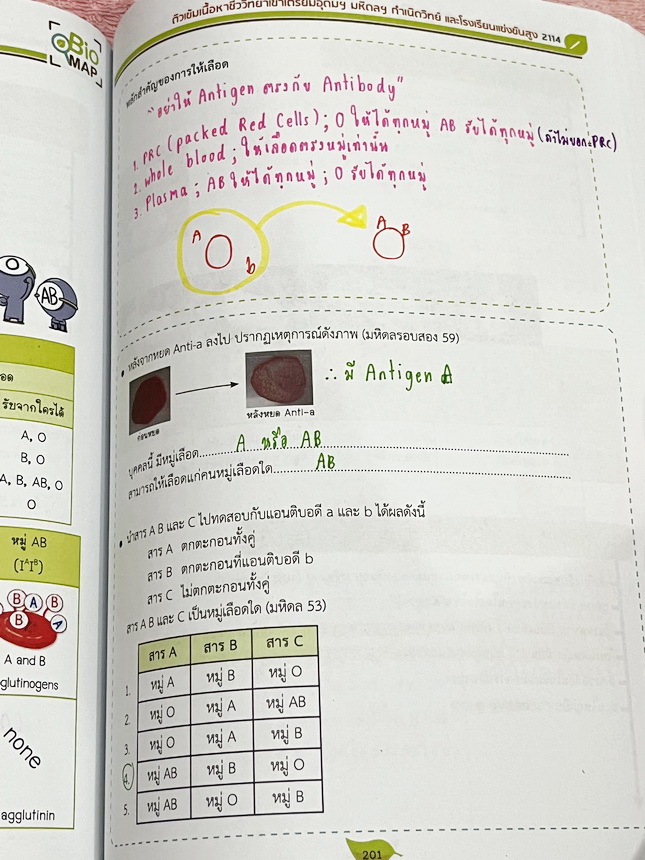 ติวเข้มเนื้อหาชีววิทยาเข้าเตรียมอุดมฯ มหิดลฯ กำเนิดวิทย์ และโรงเรียนแข่งขันสูง 2114
Bio
MAP
หลักสำคัญของการให้เลือด
"อย่าให้ Antigen ตรงกับ Antibody"
1. PRC (packed Red Cells) ; O ให้ได้ทุกหมู่ AB รับได้ทุกหมู่ (ถ้าไม่บอก=PRC)
2. whole blood ; ให้เลือดตรงหมู่เท่านั้น
3. Plasma ; AB ให้ได้ทุกหมู่ ; O รับได้ทุกหมู่
A
b
A
B
O
AB
• หลังจากหยด Anti-a ลงไป ปรากฏเหตุการณ์ดังภาพ (มหิดลรอบสอง 59)
ก่อนหยด
หลังหยด Anti-a
∴ มี Antigen A
บุคคลนี้ มีหมู่เลือด A หรือ AB
สามารถให้เลือดแก่คนหมู่เลือดใด AB
• นำสาร A B และ C ไปทดสอบกับแอนติบอดี a และ b ได้ผลดังนี้
สาร A ตกตะกอนทั้งคู่
สาร B ตกตะกอนที่แอนติบอดี b
สาร C ไม่ตกตะกอนทั้งคู่
สาร A B และ C เป็นหมู่เลือดใด (มหิดล 53)
สาร A สาร B สาร C
1. หมู่ A หมู่ B หมู่ O
2. หมู่ O หมู่ A หมู่ AB
3. หมู่ O หมู่ A หมู่ B
4. หมู่ AB หมู่ B หมู่ O
5. หมู่ AB หมู่ O หมู่ B
อด
รับจากใครได้
A, O
B, O
A, B, AB, O
O
หมู่ AB
(IᴬIᴮ)
B A B
B A
A and B
glutinogens
none
agglutinin
201